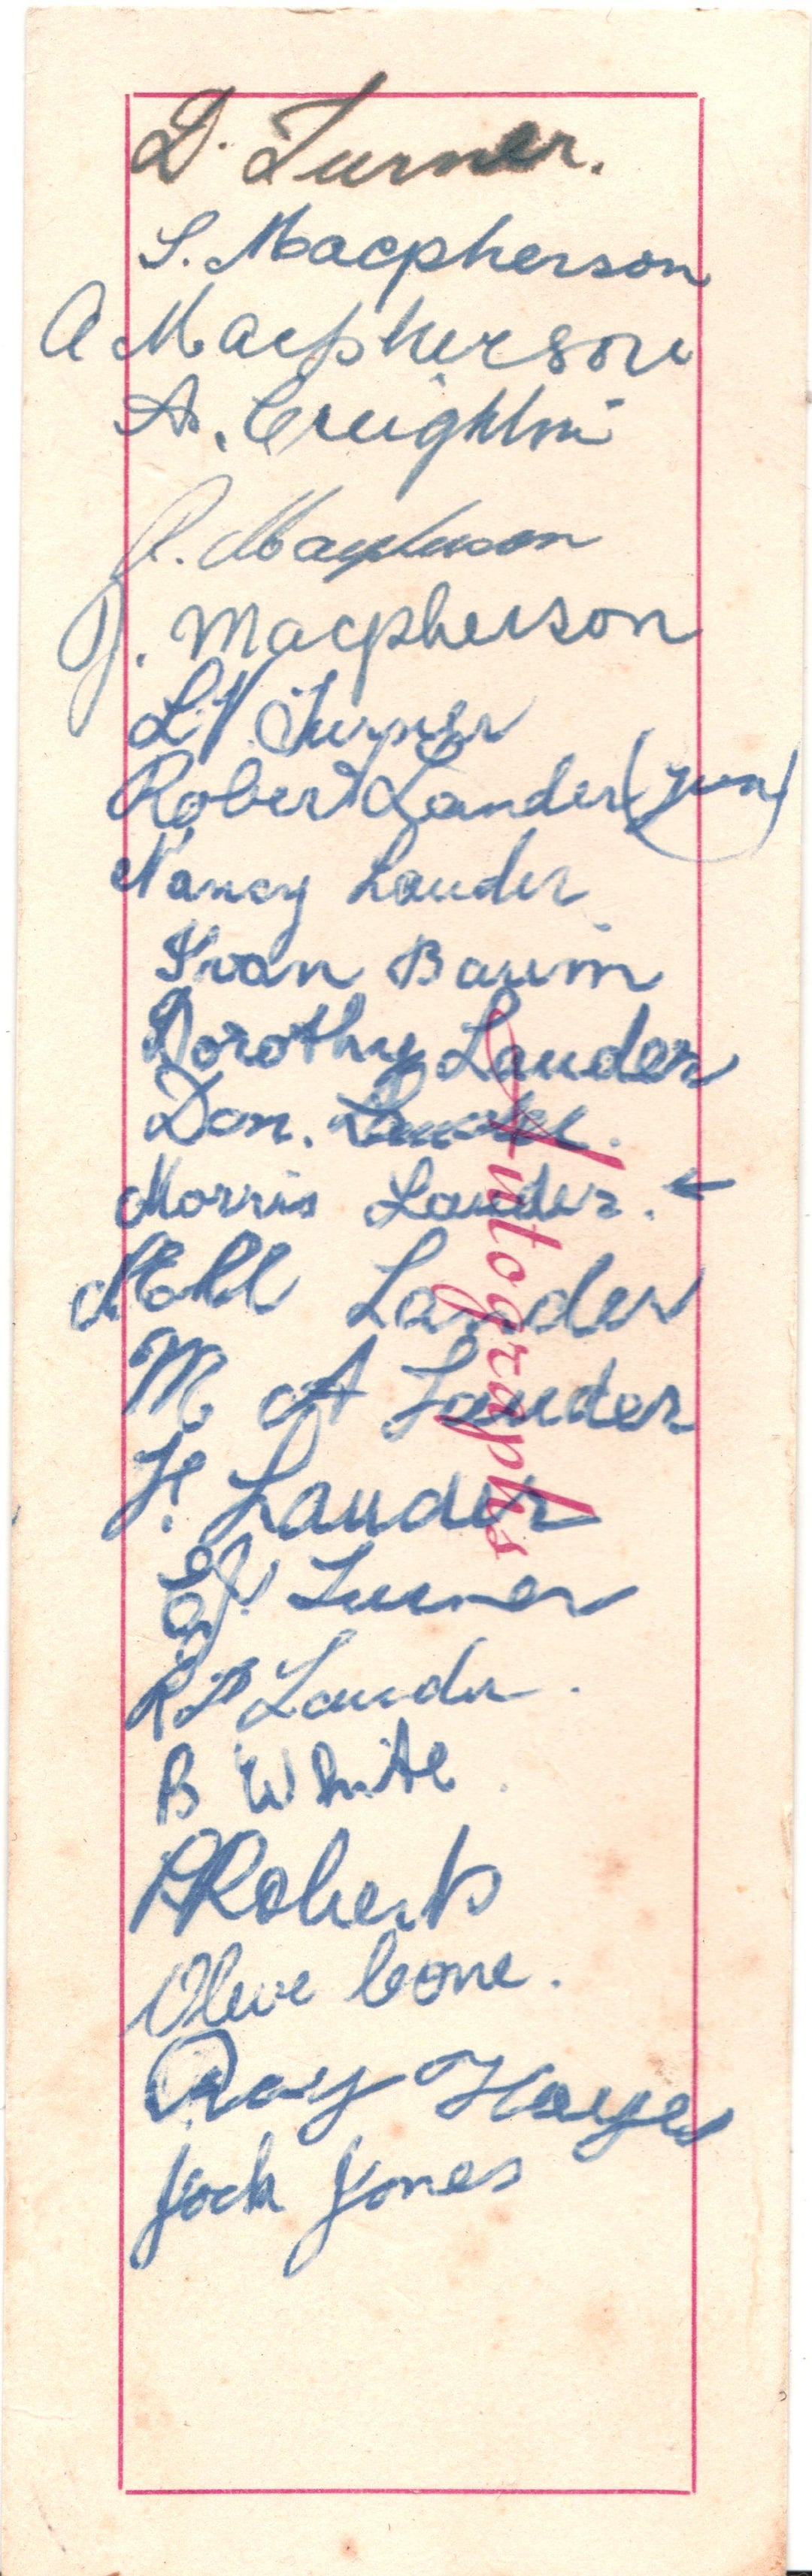 D. Turner.
S. Macpherson
A Macpherson
A. Creighton
R. Macpherson
J. Macpherson
L.V. Turner
Robert Lander (jun)
Nancy Lauder
Ivan Baum
Dorothy Lauder
Don. Lauder.
Morris Lauder. ←
Nell Lauder
M A Lauder
F. Lauder
Turner
Lauder.
B White
Roberts
Olive Cone.
Ray Hayes
Jock Jones
Autographs